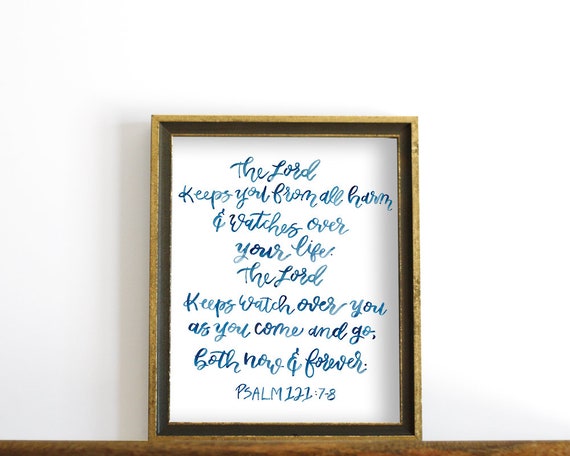 The Lord
Keeps you from all harm
& watches over
your life.
The Lord
Keeps watch over you
as you come and go,
both now & forever.
PSALM 121:7-8